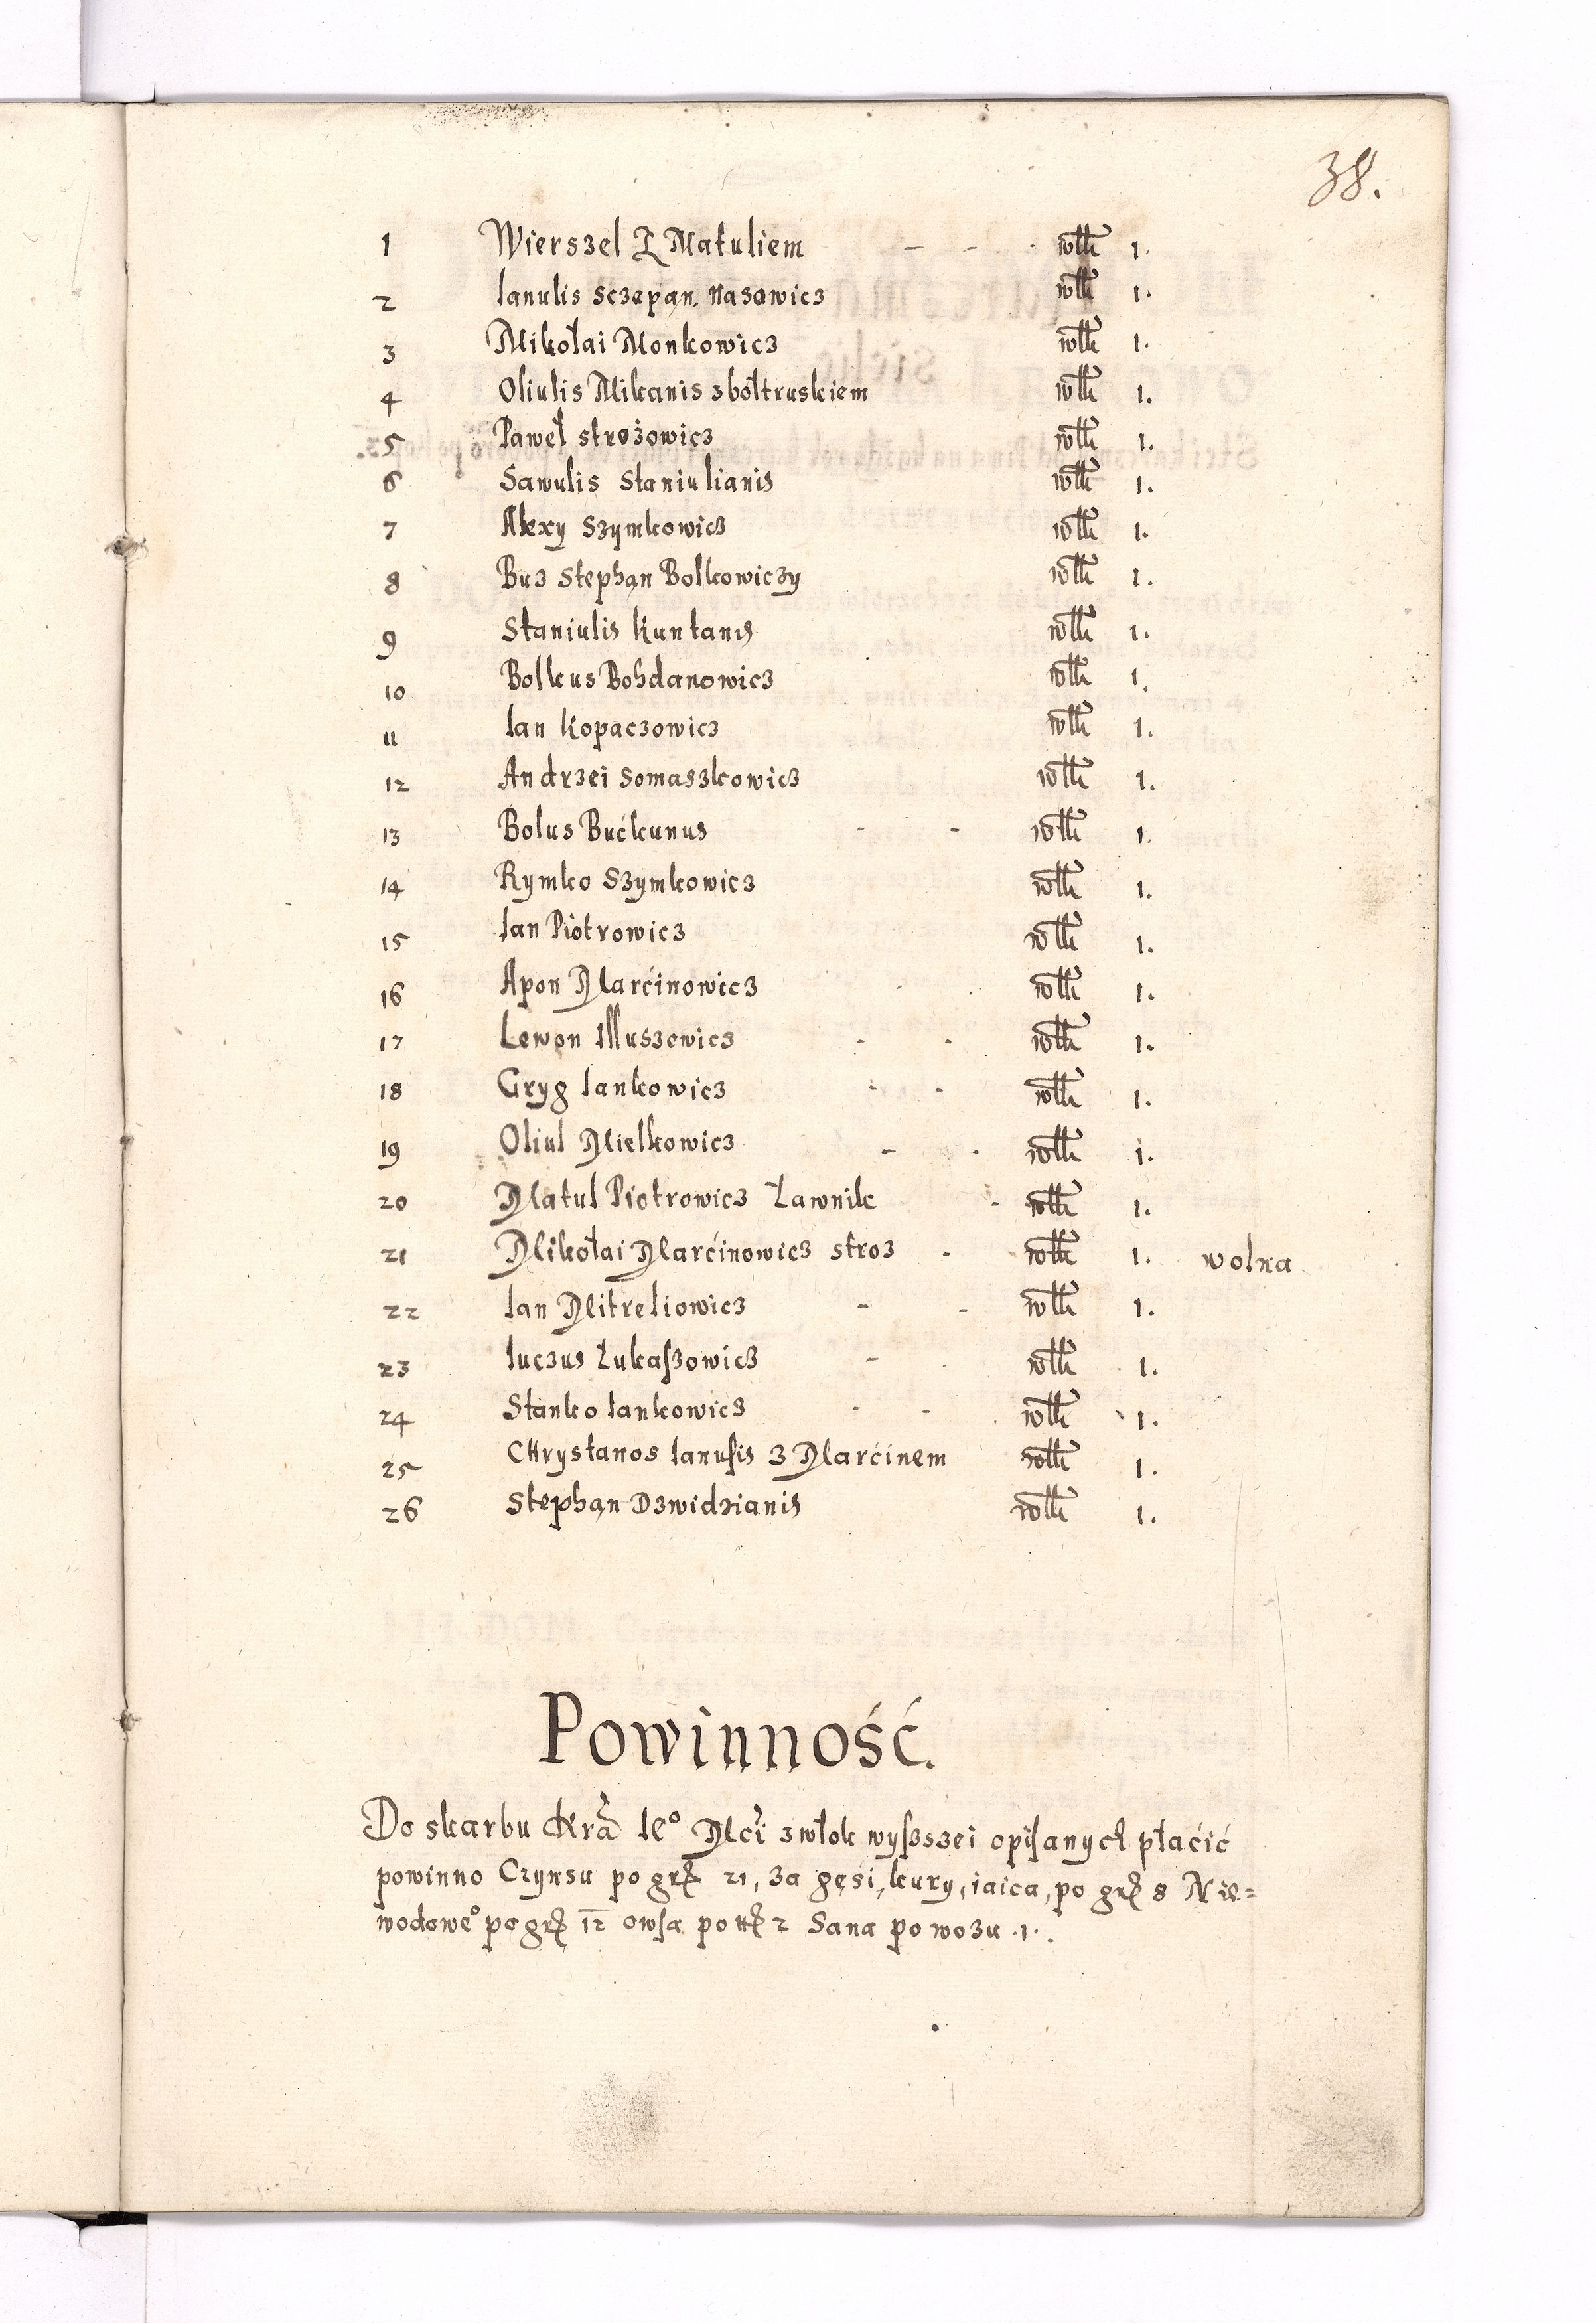 38.
1 Wierszel Z Matuliem - - . włk 1.
2 Ianulis Sczepan. Nasowicz włk 1.
3 Mikołai Monkowicz włk 1.
4 Oliulis Mikanis z bołtruskiem włk 1.
5 Paweł strożowicz włk 1.
6 Sawulis Staniulianis włk 1.
7 Alexy Szymkowicz włk 1.
8 Buz Stephan Bolkowiczy włk 1.
9 Staniulis Kuntanis włk 1.
10 Bolkus Bohdanowicz włk 1.
11 Ian Kopaczowicz włk 1.
12 Andrzei Somaszkowicz włk 1.
13 Bolus Bućkunus - - włk 1.
14 Rymko Szymkowicz włk 1.
15 Ian Piotrowicz włk 1.
16 Apon Marcinowicz . . włk 1.
17 Lewon Muszewicz - - włk 1.
18 Gryg Iankowicz - - włk 1.
19 Oliul Mielkowicz - . włk 1.
20 Matul Piotrowicz Ławnik - włk 1.
21 Mikołai Marcinowicz stroz - włk 1. wolna
22 Ian Mitreliowicz - - włk 1.
23 Iuczus Łukaſzowicz - . włk 1.
24 Stanko Iankowicz - - włk 1.
25 CHrystanos Ianuſis z Marcinem włk 1.
26 Stephan Dzwidzianis włk 1.
Powinność.
Do skarbu Kra Ieº Mci z włok wyſzszei opiſanych płaćić
powinno Czynsu po gr 21, za gęsi, kury, iaica, po gr 8 Nie=
wodoweº po gr 12 owſa po 2 Sana po wozu .1.